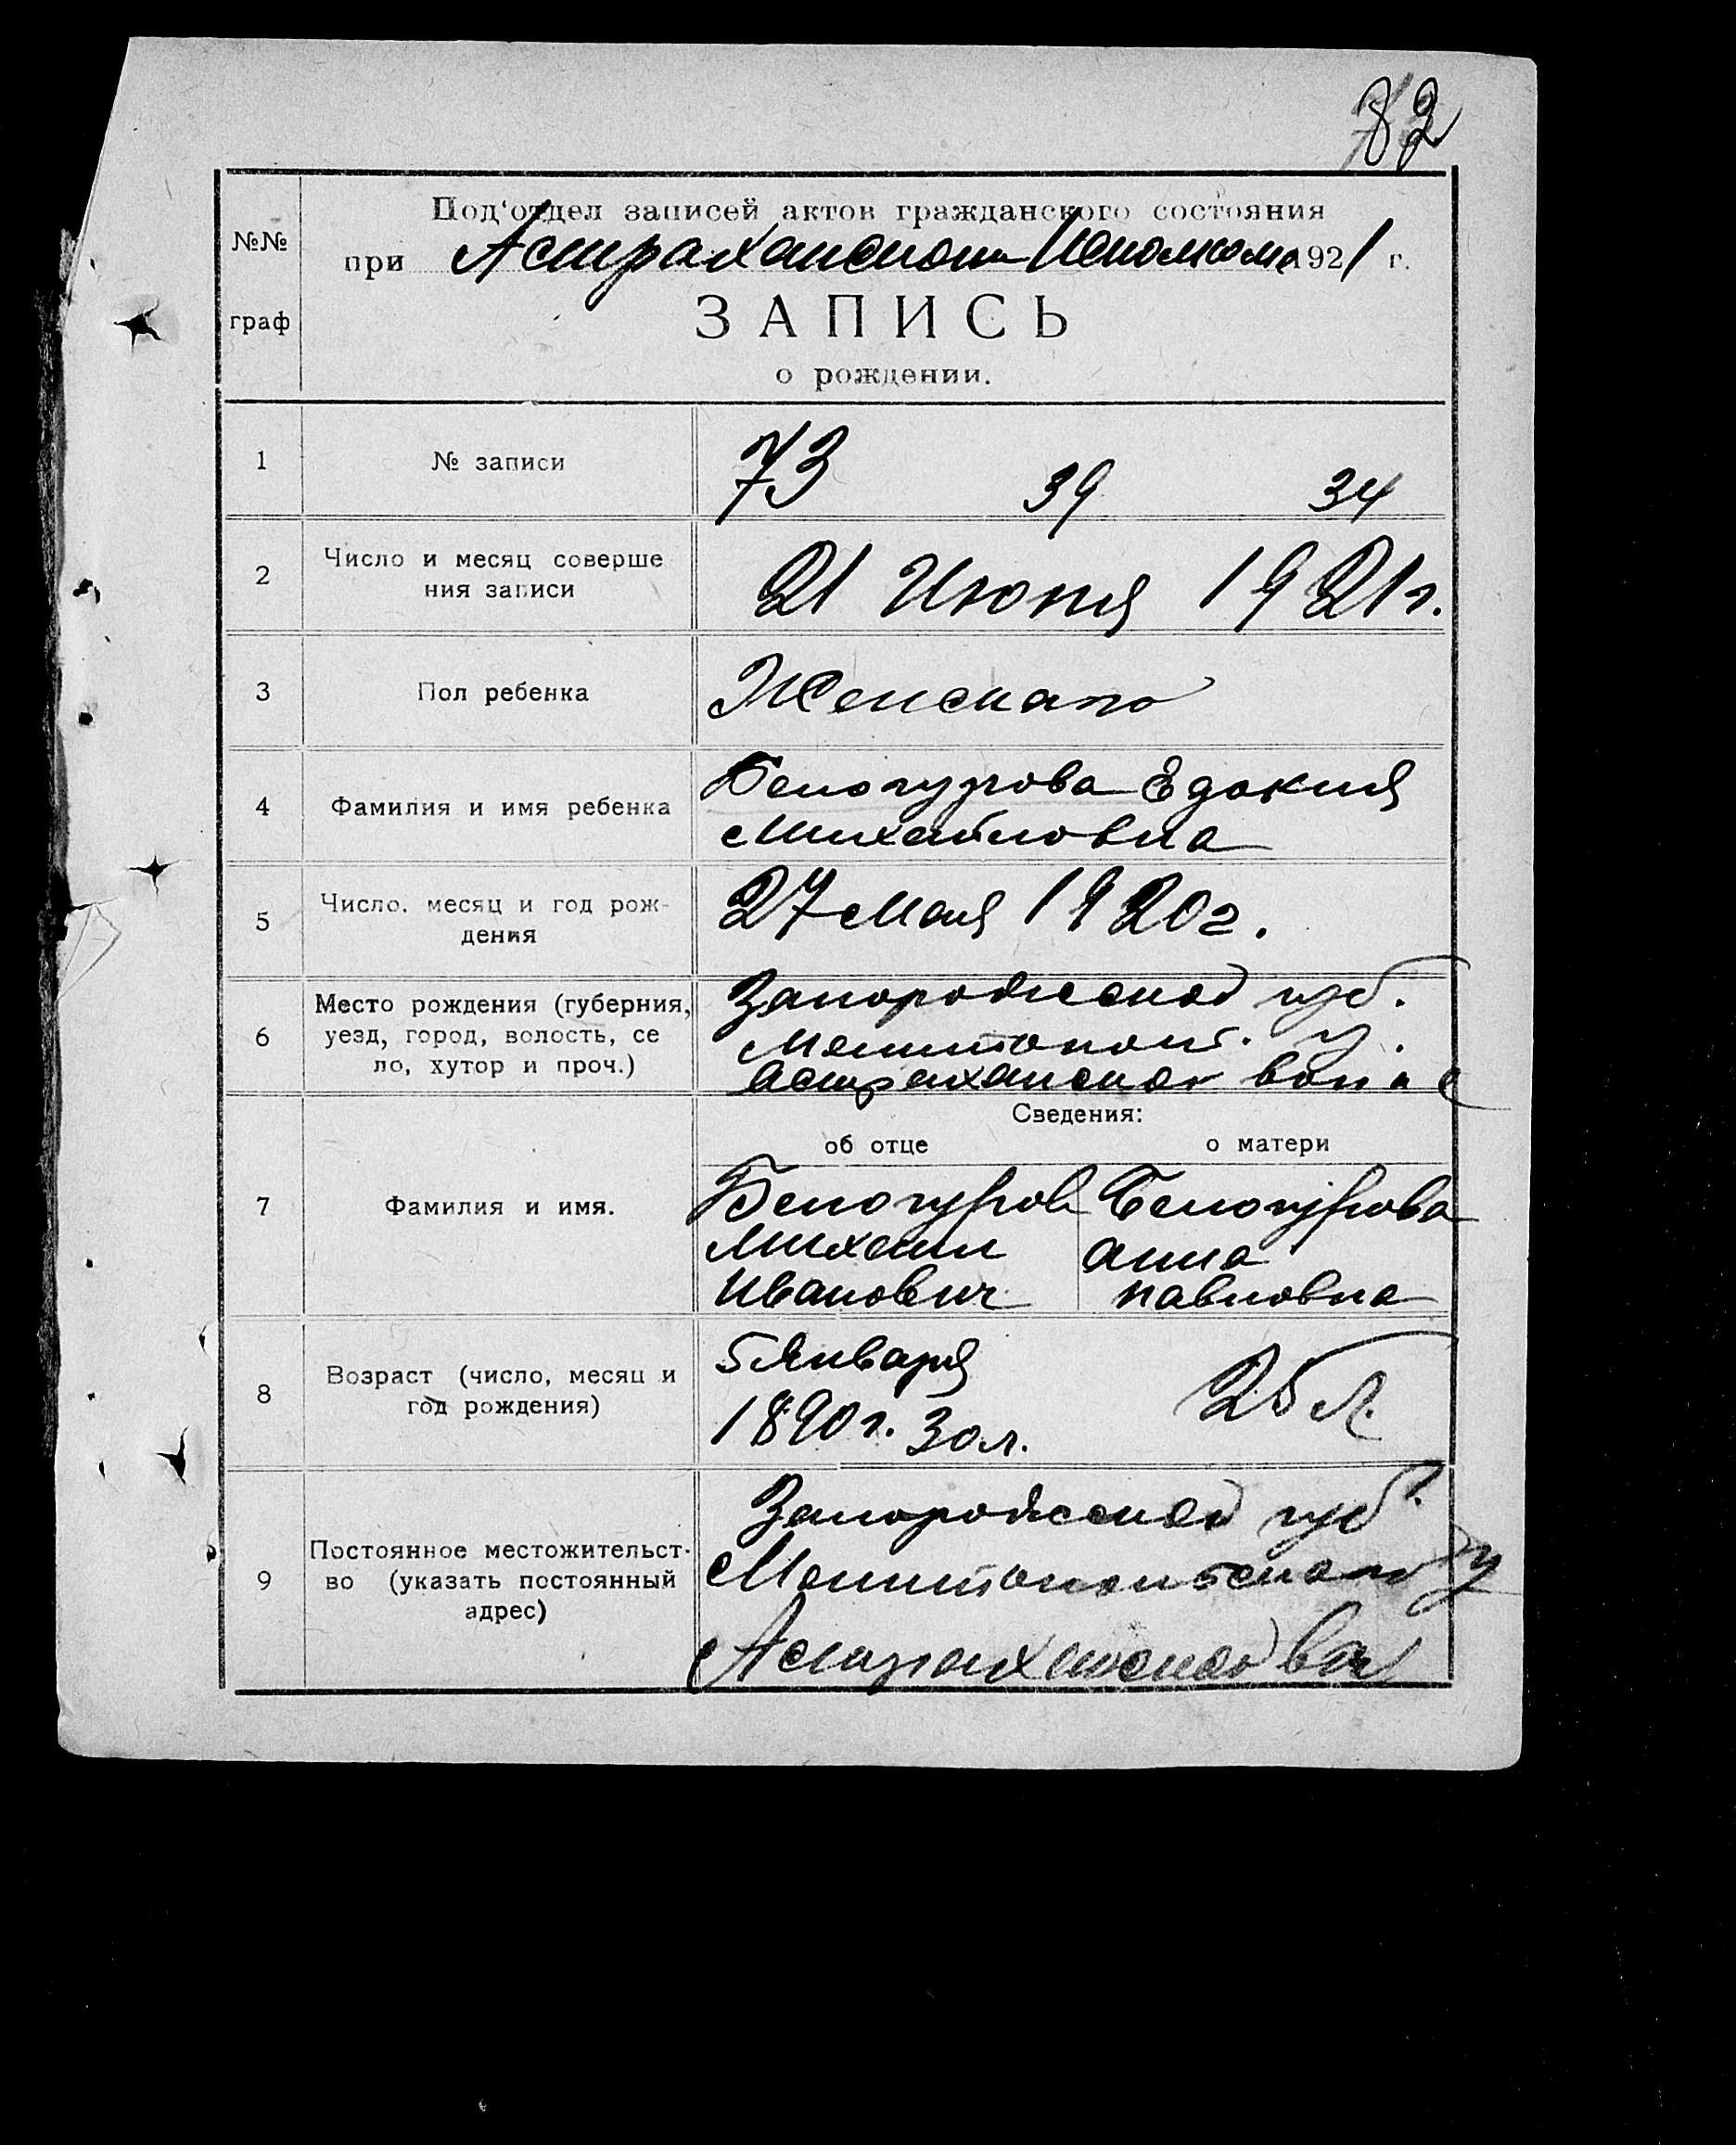 82
№№
граф
Под'отдел записей актов гражданского состояния
при Астраханском Исполкоме 1921 г.
ЗАПИСЬ
о рождении.
1 № записи 73 39 34
2 Число и месяц соверше
ния записи
21 Июня 1921 г.
3 Пол ребенка Женскаго
4 Фамилия и имя ребенка
Белогурова Едокия
Михайловна
5 Число, месяц и год рож-
дения
27 Мая 1920 г.
6 Место рождения (губерния,
уезд, город, волость, се
ло, хутор и проч.)
Запорожской губ.
Мелитопол. у.
Астраханской вол. и с
Сведения:
об отце о матери
7 Фамилия и имя.
Белогуров
Михаил
Иванович
Белогурова
Анна
Павловна
8 Возраст (число, месяц и
год рождения)
5 Января
1890 г. 30 л.
25 л.
9 Постоянное местожительст-
во (указать постоянный
адрес)
Запорожской губ.
Мелитопольскаго у
Астраханской вол